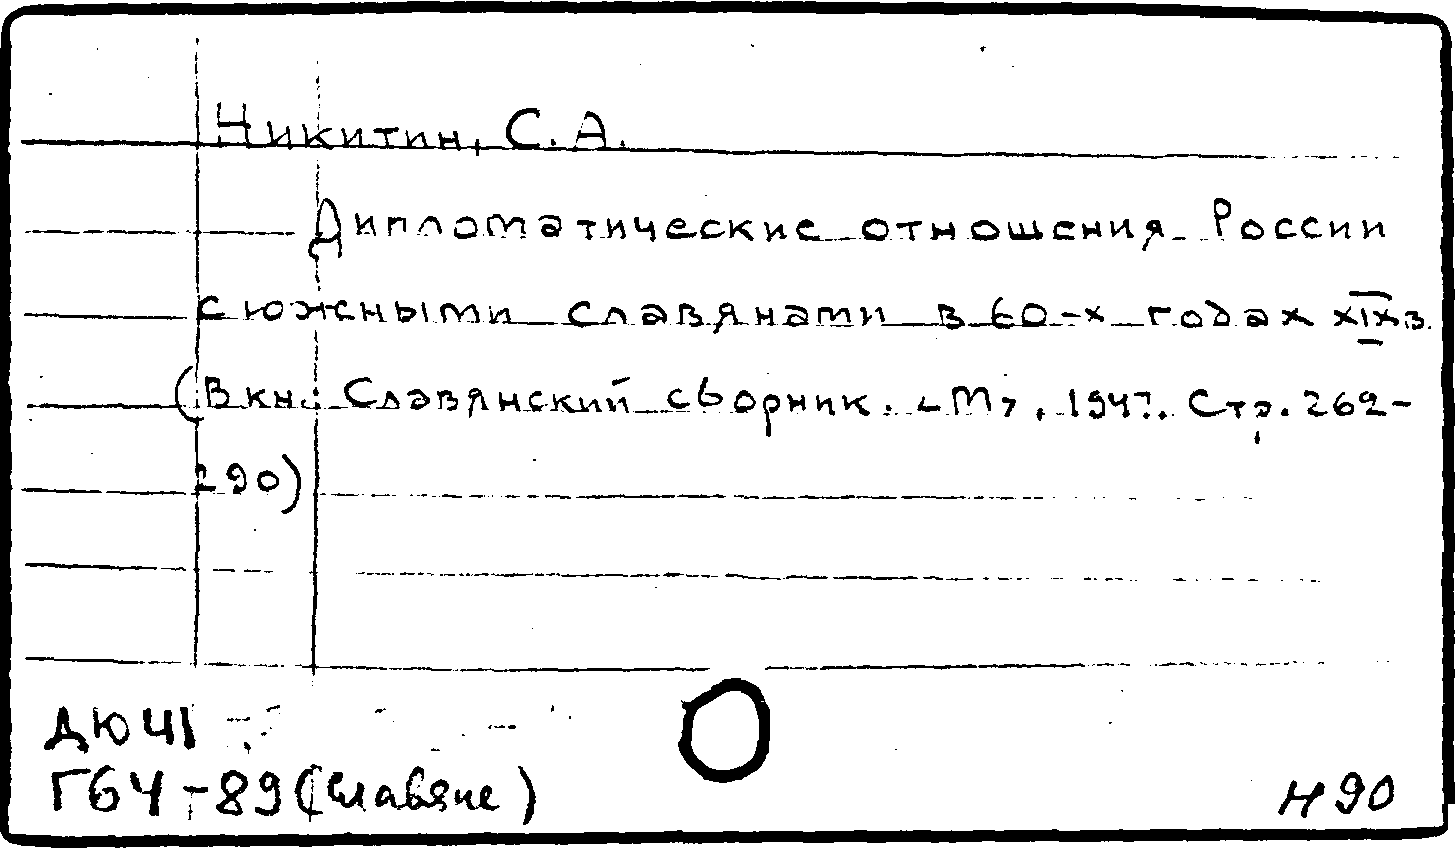 Никитин, С.А.
Дипломатические отношения России
с южными славянами в 60-х годах XIX в.
(В кн.: Славянский сборник. <М>, 1947. Стр. 262-
290)
ДЮ41
Г64-89 (славяне)
Н90